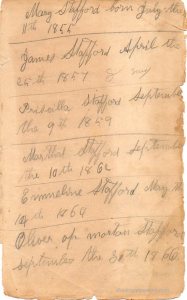 Mary Stafford born July the
11th 1855
James Stafford April the
25th 1857
Priscilla Stafford September
the 9th 1859
Marthat Stafford September
the 10th 1862
Emmeline Stafford May the
14th 1864
Oliver op mortan Stafford
September the 30th 1866